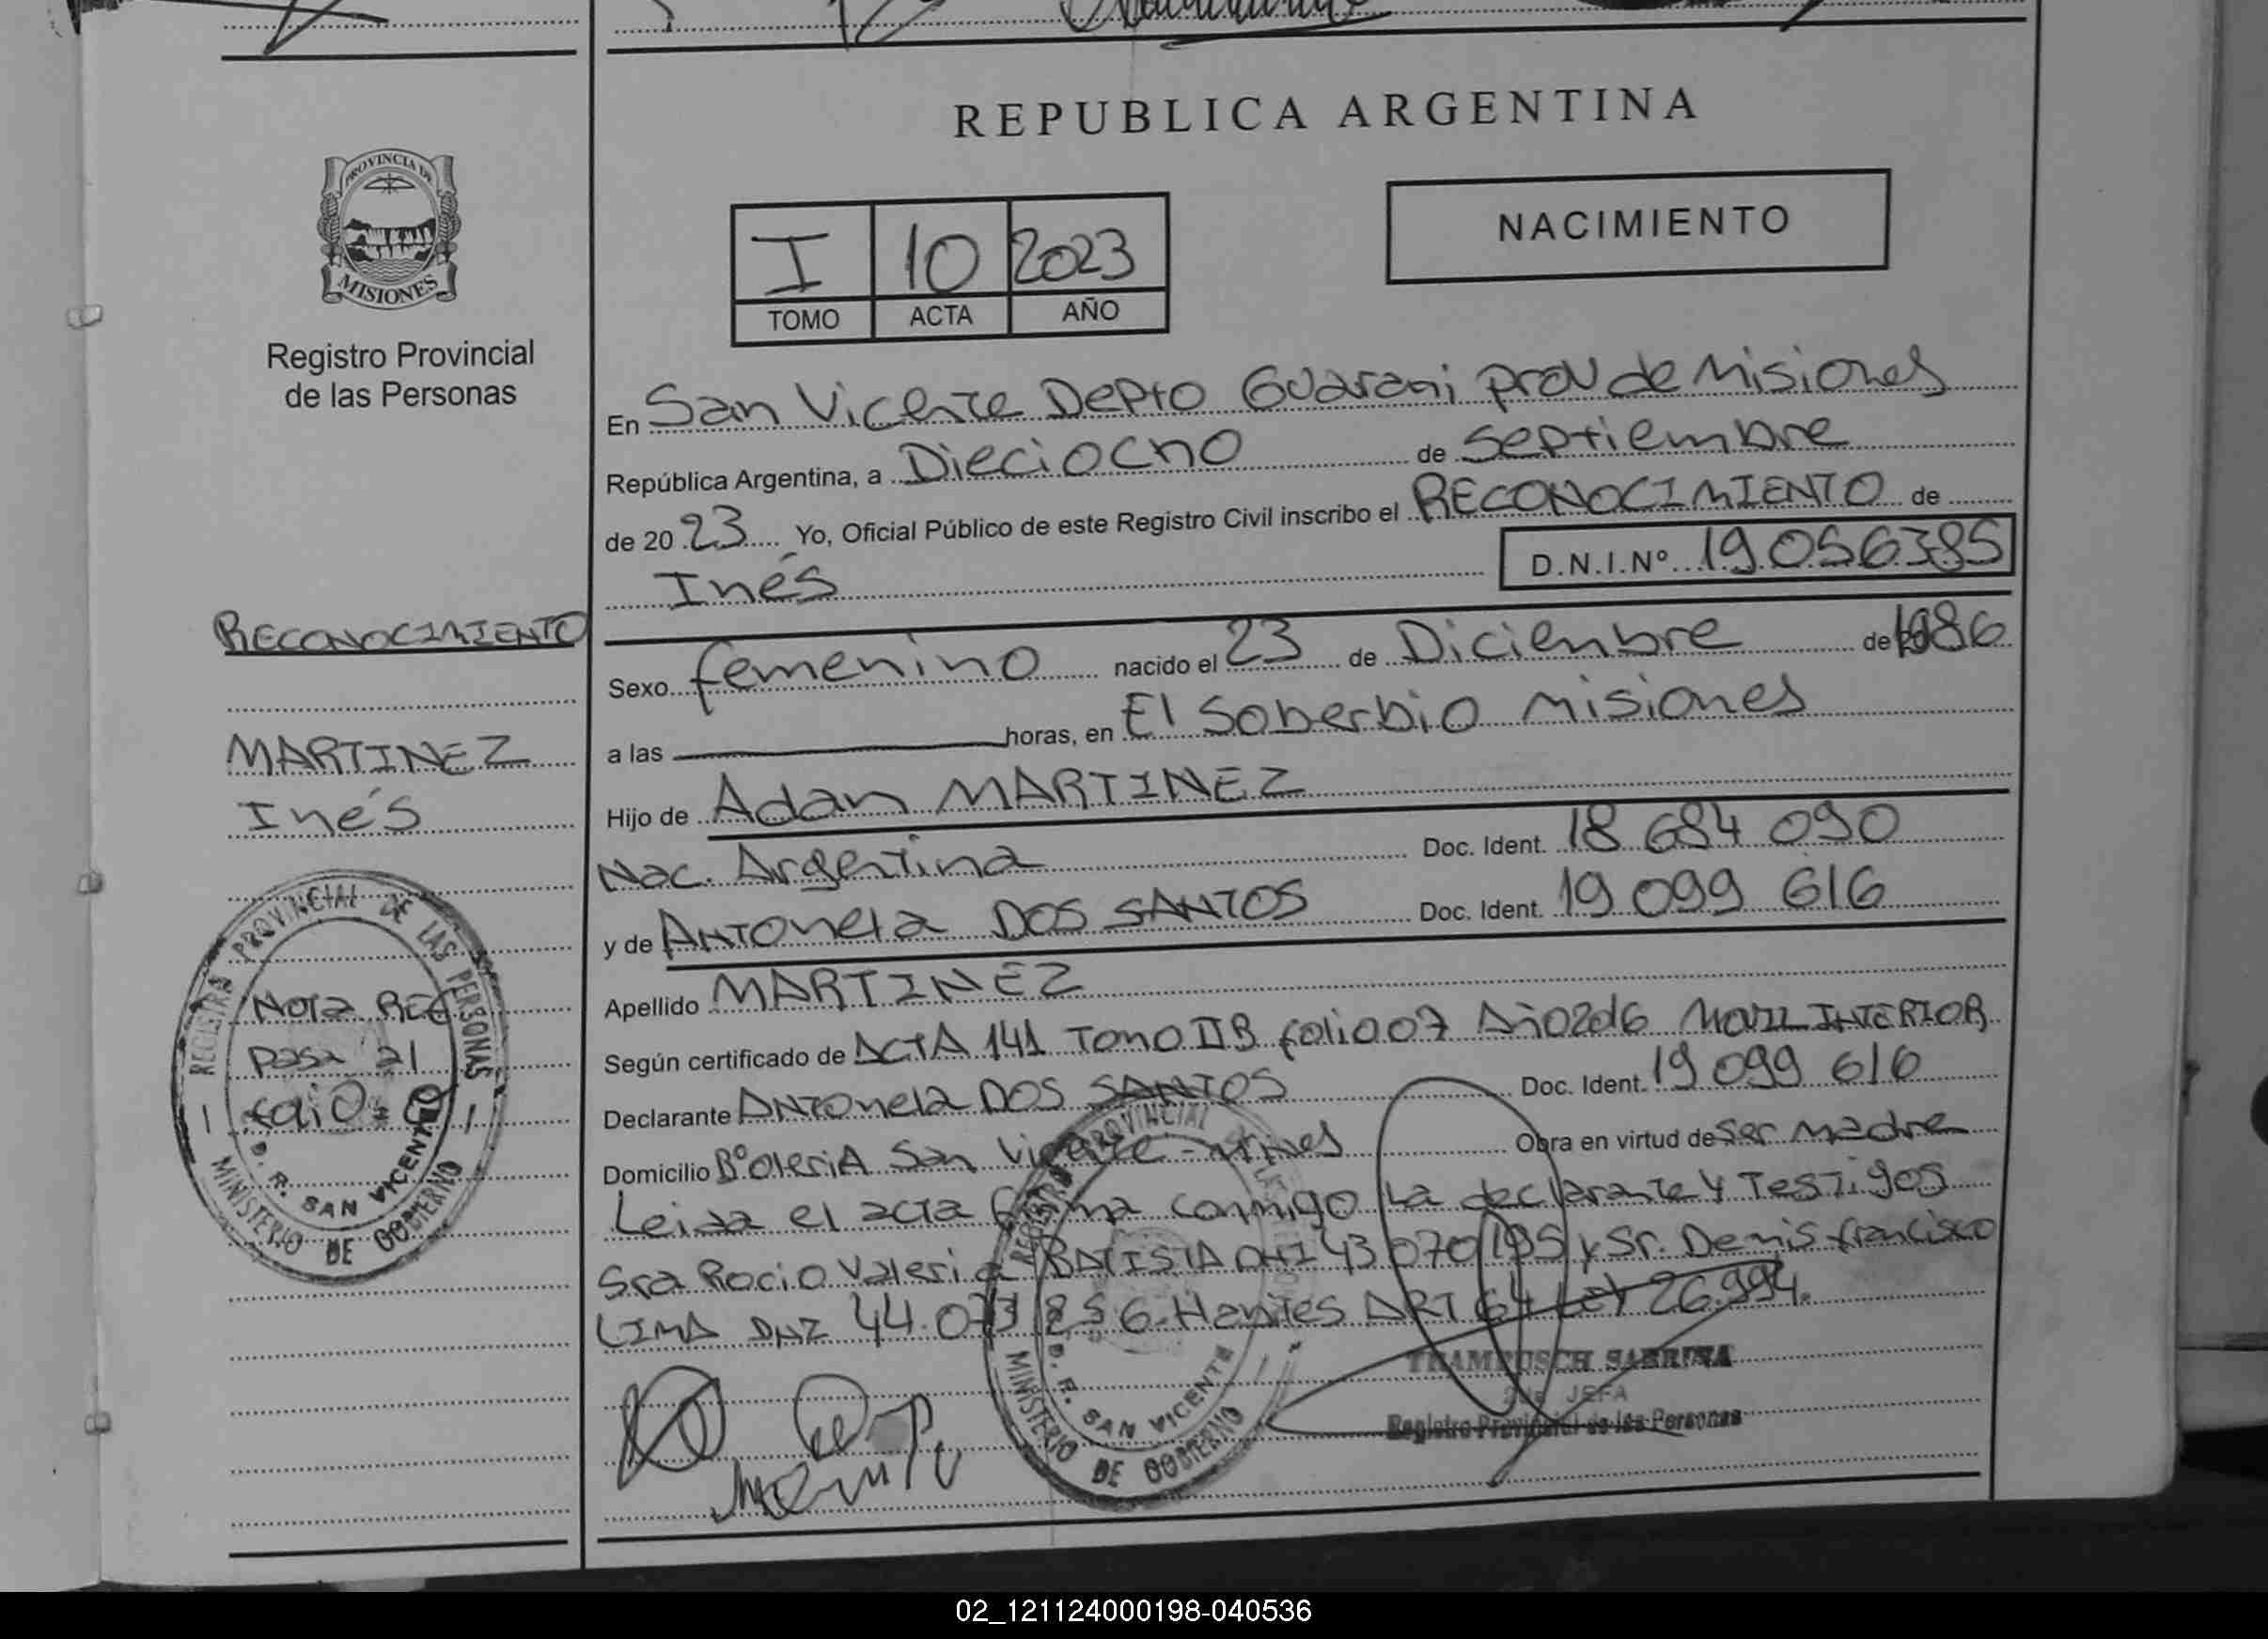 REPUBLICA ARGENTINA
PROVINCIA DE
MISIONES
Registro Provincial
de las Personas
I 10 2023
TOMO ACTA AÑO
NACIMIENTO
En San Vicente Depto Guarani prov de Misiones
República Argentina, a Dieciocho de Septiembre
de 2023 Yo, Oficial Público de este Registro Civil inscribo el RECONOCIMIENTO de
Inés D.N.I.Nº 19.056.385
Sexo femenino nacido el 23 de Diciembre de 1986
a las horas, en El Soberbio Misiones
Hijo de Adan MARTINEZ
Nac. Argentina Doc. Ident. 18 684 090
y de Antonela DOS SANTOS Doc. Ident. 19 099 616
Apellido MARTINEZ
Según certificado de ACTA 141 Tomo II B folio 07 INTERIOR
Declarante Antonela DOS SANTOS Doc. Ident. 19 099 616
Domicilio San Vicente - Obra en virtud de Ser madre
Leida el acta firma conmigo La declarante y Testigos
Sra Rocio Valeria BATISTA DNI 43 070 195 y Sr. Demis francisco
LIMA DNI 44.073 ART 64 Ley 26.994.
TRAMPUSCH SABRINA
JEFA
Registro Provincial de las Personas
RECONOCIMIENTO
MARTINEZ
Inés
REGISTRO PROVINCIAL DE LAS PERSONAS
Nota REC
pasa al
D. R. SAN VICENTE
MINISTERIO DE GOBIERNO
PROVINCIAL
D. R. SAN VICENTE
MINISTERIO DE GOBIERNO
02_121124000198-040536